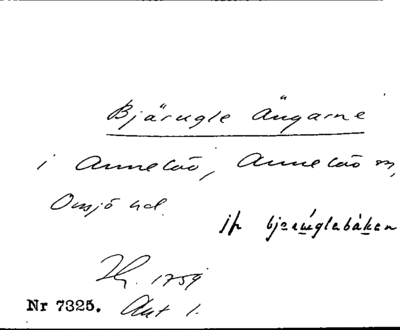 Bjärugle Ängarne
i Annelöv, Annelöv sn,
Onsjö hd.
jfr bjerúglabáken
Hf. 1759
Nr 7325. Akt 1.